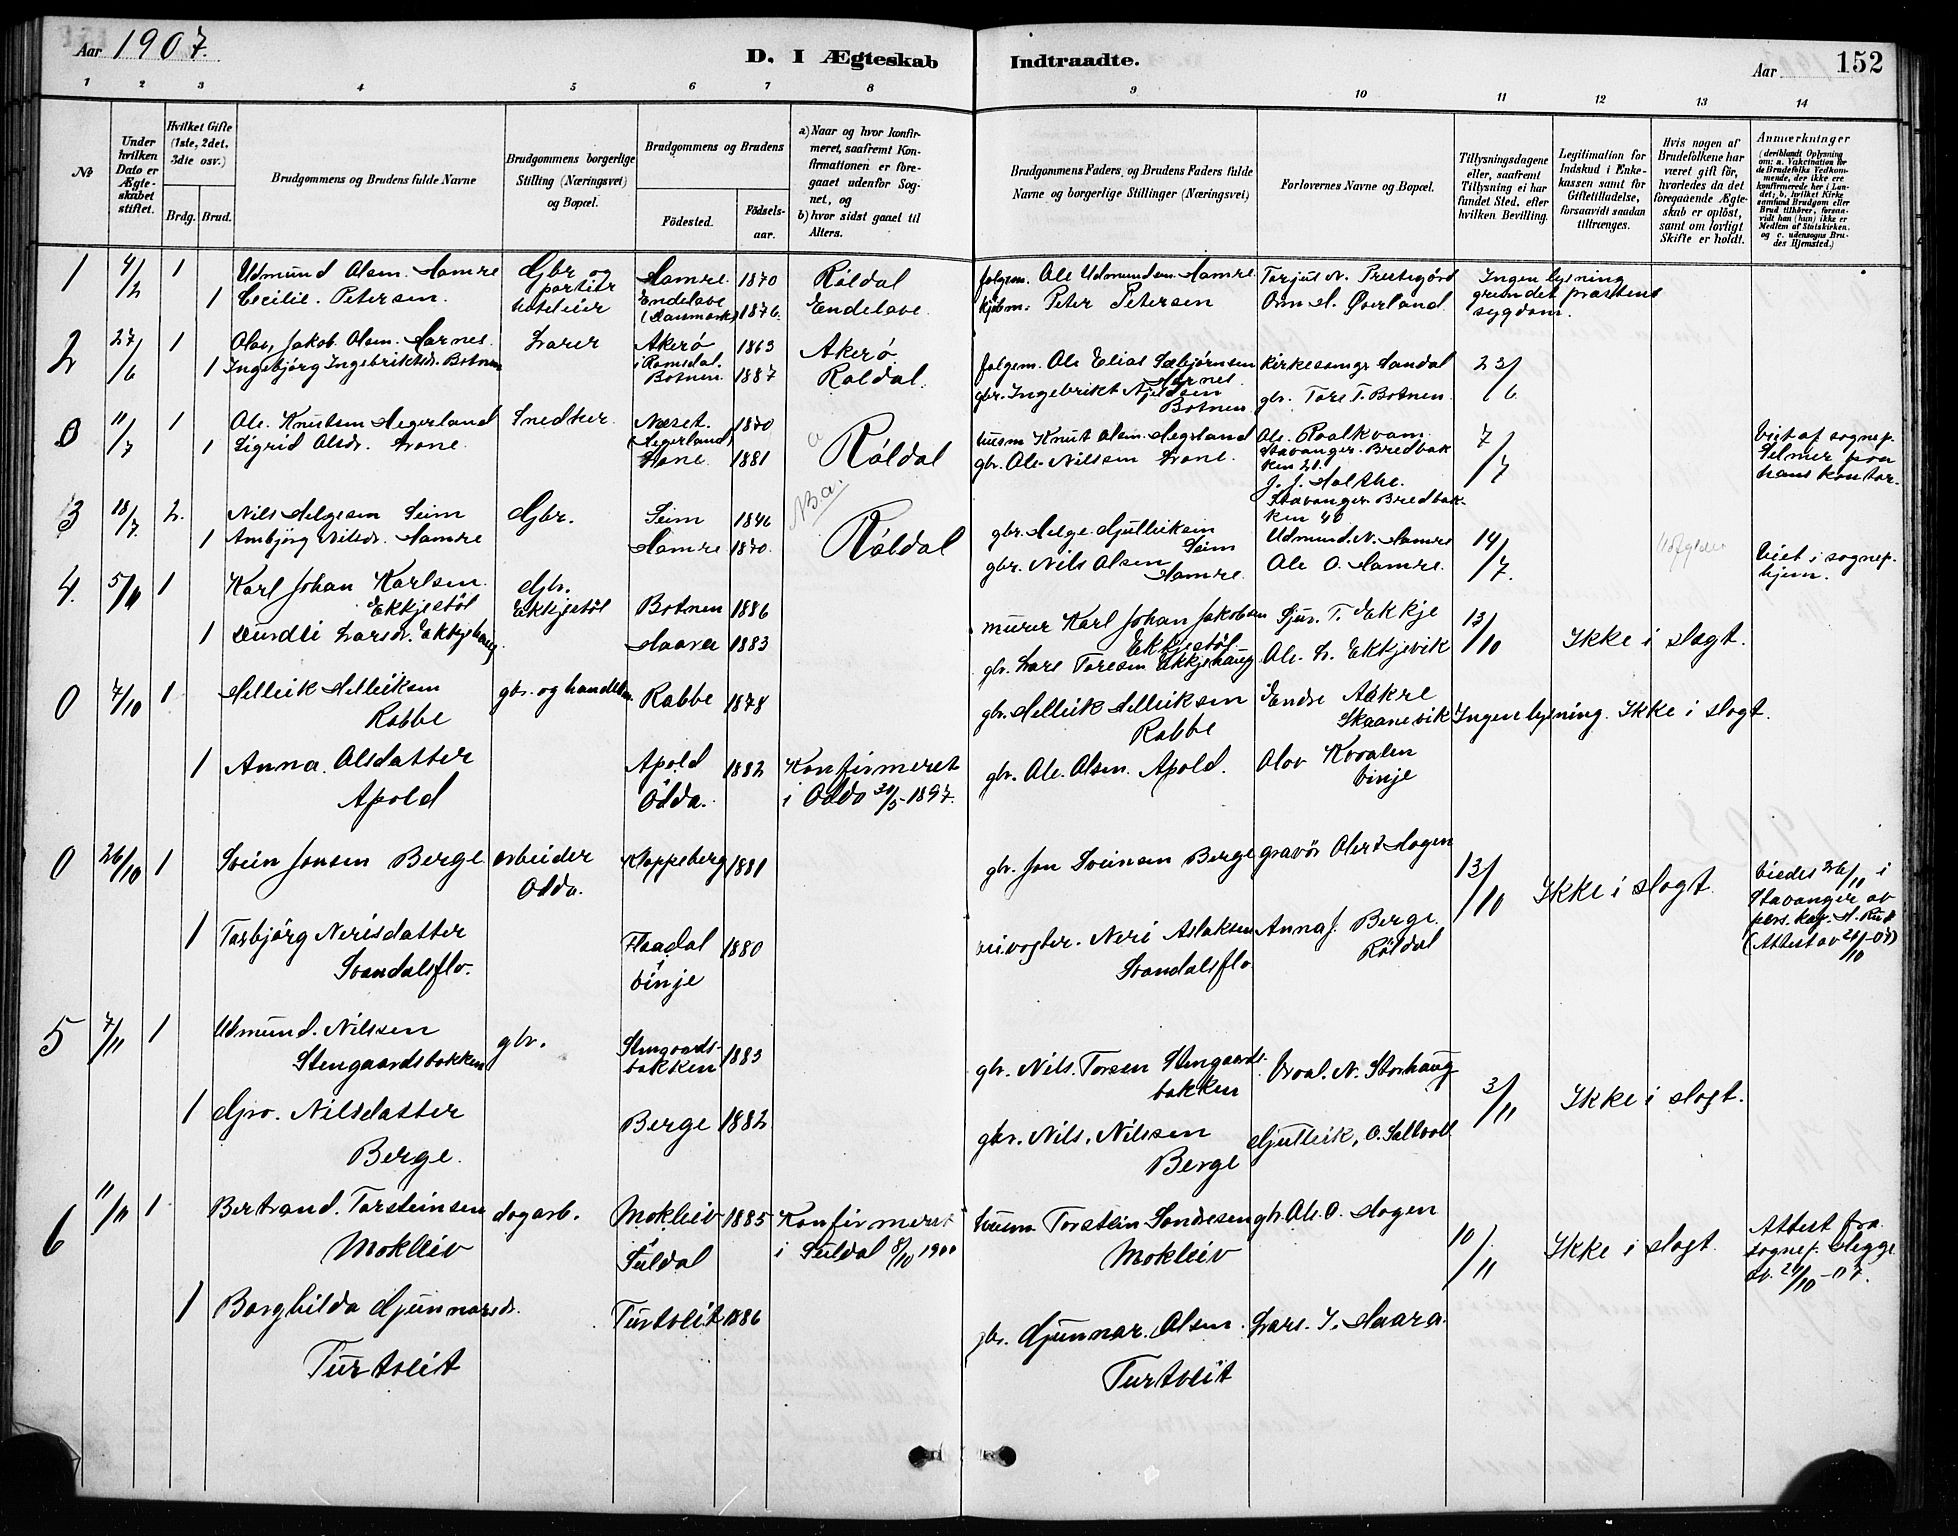 Aar 1907.
D. I Ægteskab Indtraadte.
Aar 152
1 2 3 4 5 6 7 8 9 10 11 12 13 14
No
Under hvilken Dato er Ægteskabet stiftet.
Hvilket Gifte (1ste, 2det, 3die osv.)
Brdg. Brud.
Brudgommens og Brudens fulde Navne
Brudgommens borgerlige Stilling (Næringsvei) og Bopæl.
Brudgommens og Brudens
Födested. Födselsaar.
a) Naar og hvor konfirmeret, saafremt Konfirmationen er foregaaet udenfor Sognet, og
b) hvor sidst gaaet til Alters.
Brudgommens Faders, og Brudens Faders fulde Navne og borgerlige Stillinger (Næringsvei)
Forlovernes Navne og Bopæl.
Tillysningsdagene eller, saafremt Tillysning ei har fundet Sted, efter hvilken Bevilling.
Legitimation for Indskud i Enkekassen samt for Giftetilladelse, forsaavidt saadan tiltrænges.
Hvis nogen af Brudefolkene har været gift før, hvorledes da det foregaaende Ægteskab er oplöst, samt om lovligt Skifte er holdt.
Anmærkninger
(deriblandt Oplysning om: a. Vakcination for de Brudefolks Vedkommende, der ikke ere konfirmerede her i Landet; b. hvilket Kirkesamfund Brudgom eller Brud tilhører, forsaavidt han (hun) ikke er Medlem af Statskirken, og c. udensogns Brudes Hjemsted.)
1 4/2 1 Udmund Olsen. Hamre Gbr og partier hoteleier Hamre. 1870 Röldal folgem. Ole Udmundsen. Hamre Torjus N. Prestegård Ingen lysning grundet præstens sygdom.
1 Cecilie. Petersen. Endelave (Danmark) 1876. Endelave. kjöbm. Peter Petersen Orm H. Øverland
2 27/6 1 Olav, Jakob. Olsen. Harnes. Lærer Akerö i Romsdal. 1863 Akerö. folgem. Ole Elias Sæbjørnsen Harnes. Kirkesanger Sandal 23/6
1 Ingebjörg Ingebriktsdr. Botnen Botnen. 1887 Röldal. gbr. Ingebrikt Njeldsen Botnen gbr. Tore T. Botnen.
0 11/7 1 Ole. Knutsen Hegerland Snedker Næset. (Hegerland) 1870 Röldal husm Knut Olsen. Hegerland Ole. Roalkvam. Stavanger. Bredbakken 21. 7/7 Viet af sognep. Selmer paa hans kontor.
1 Sigrid Olsdr. Lone. Hone 1881 gbr. Ole. Nilsen Lone. J. J. Molthe. Stavanger Bredbakken 40
3 18/7. 2. Nils Helgesen Seim Gbr. Seim 1846 NBa. Röldal gbr. Helge Gjulleiksen Seim Udmund. N. Hamre 14/7. Viet i sognep. hjem.
1 Ambjörg Nilsdr. Hamre Hamre 1870. gbr. Nils Olsen Hamre. Ole O. Hamre.
4. 5/11 1 Karl Johan Karlsen. Ekkjestöl Gbr. Ekkjestöl Botnen 1886 murer Karl Johan Jakobsen Ekkjestöl Sjur. T. Ekkje 13/10 Ikke i slægt.
1 Durdei Larsdr. Ekkjehaug Haara 1883 gbr. Lars Toresen Ekkjehaug Ole. L. Ekkjevik
0 7/10 1 Helleik Helleiksen Rabbe gbr. og handelsm. Rabbe 1878 gbr. Helleik Helleiksen Rabbe Endre Aakre Skaanevik Ingen lysning. Ikke i slegt.
1 Anna. Olsdatter Apold Apold Odda. 1882 Konfirmeret i Odda 30/5 1897. gbr. Ole. Olsen. Apold. Olav Kvaalen Vinje
0 26/10 1 Svein Jonsen Berge arbeider Odda. Kloppeberg 1881 gbr. Jon Sveinsen Berge gravör Olert Hagen 13/10 Ikke i slegt. Viedes 26/10 i Stavanger av pers. kap. H. Rud (Attest av 26/10-07)
1 Torbjörg Nerisdatter Svandalsflo. Flaadal i Vinje 1880 veivogter. Neri Aslaksen Svandalsflo Anna J. Berge. Röldal
5 7/11 1 Udmund. Nilsen Stengaardsbakken gbr. Stengaardsbakken 1883 gbr. Nils. Torsen Stengaardsbakken Oval. N. Storhaug 3/11 Ikke i slegt.
1 Gjro. Nilsdatter Berge. Berge 1882 gbr. Nils. Nilsen Berge Gjulleik, O. Saltvoll
6 11/11 1 Bertrand. Torsteinsen Mokleiv dagarb. Mokleiv i Suldal 1885 Konfirmeret i Suldal 8/10 1900 husm Torstein Sondresen Mokleiv gbr. Ole. O. Hagen 10/11 Ikke i slegt. Attest fra sognep. Hegge av. 21/10-07.
1 Borghilda Gjunnarsdr. Turtveit Turtveit 1886 gbr. Gjunnar. Olsen. Turtveit Lars. J. Haara.